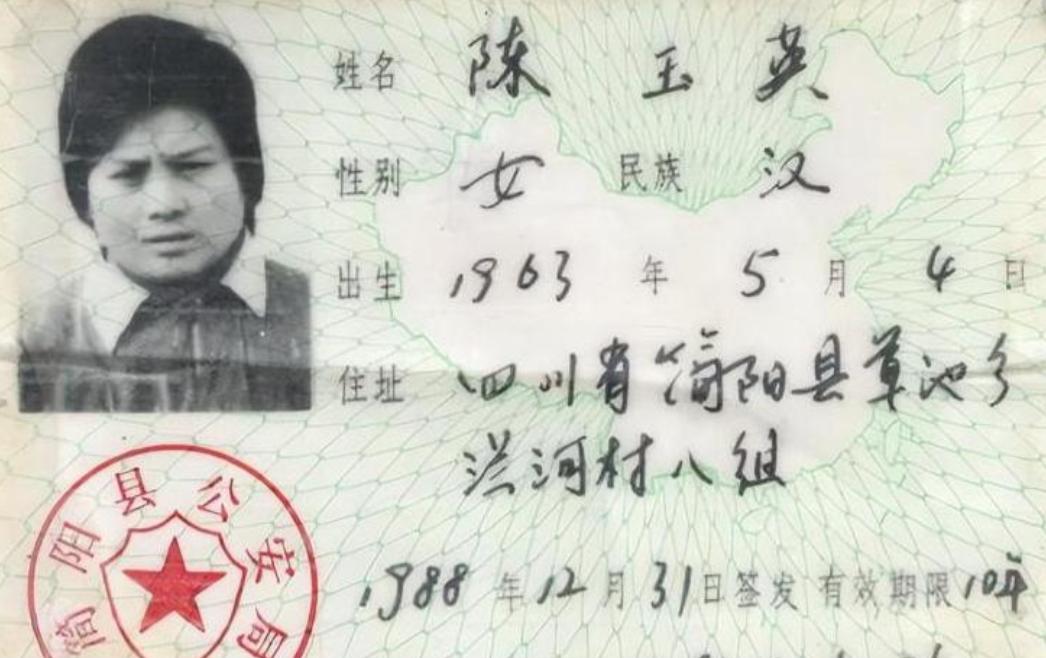 姓名 陈玉英
性别 女 民族 汉
出生 1963 年 5 月 4 日
住址 四川省简阳县草池乡
洪河村八组
1988 年 12 月 31 日签发 有效期限 10年
简阳县公安局